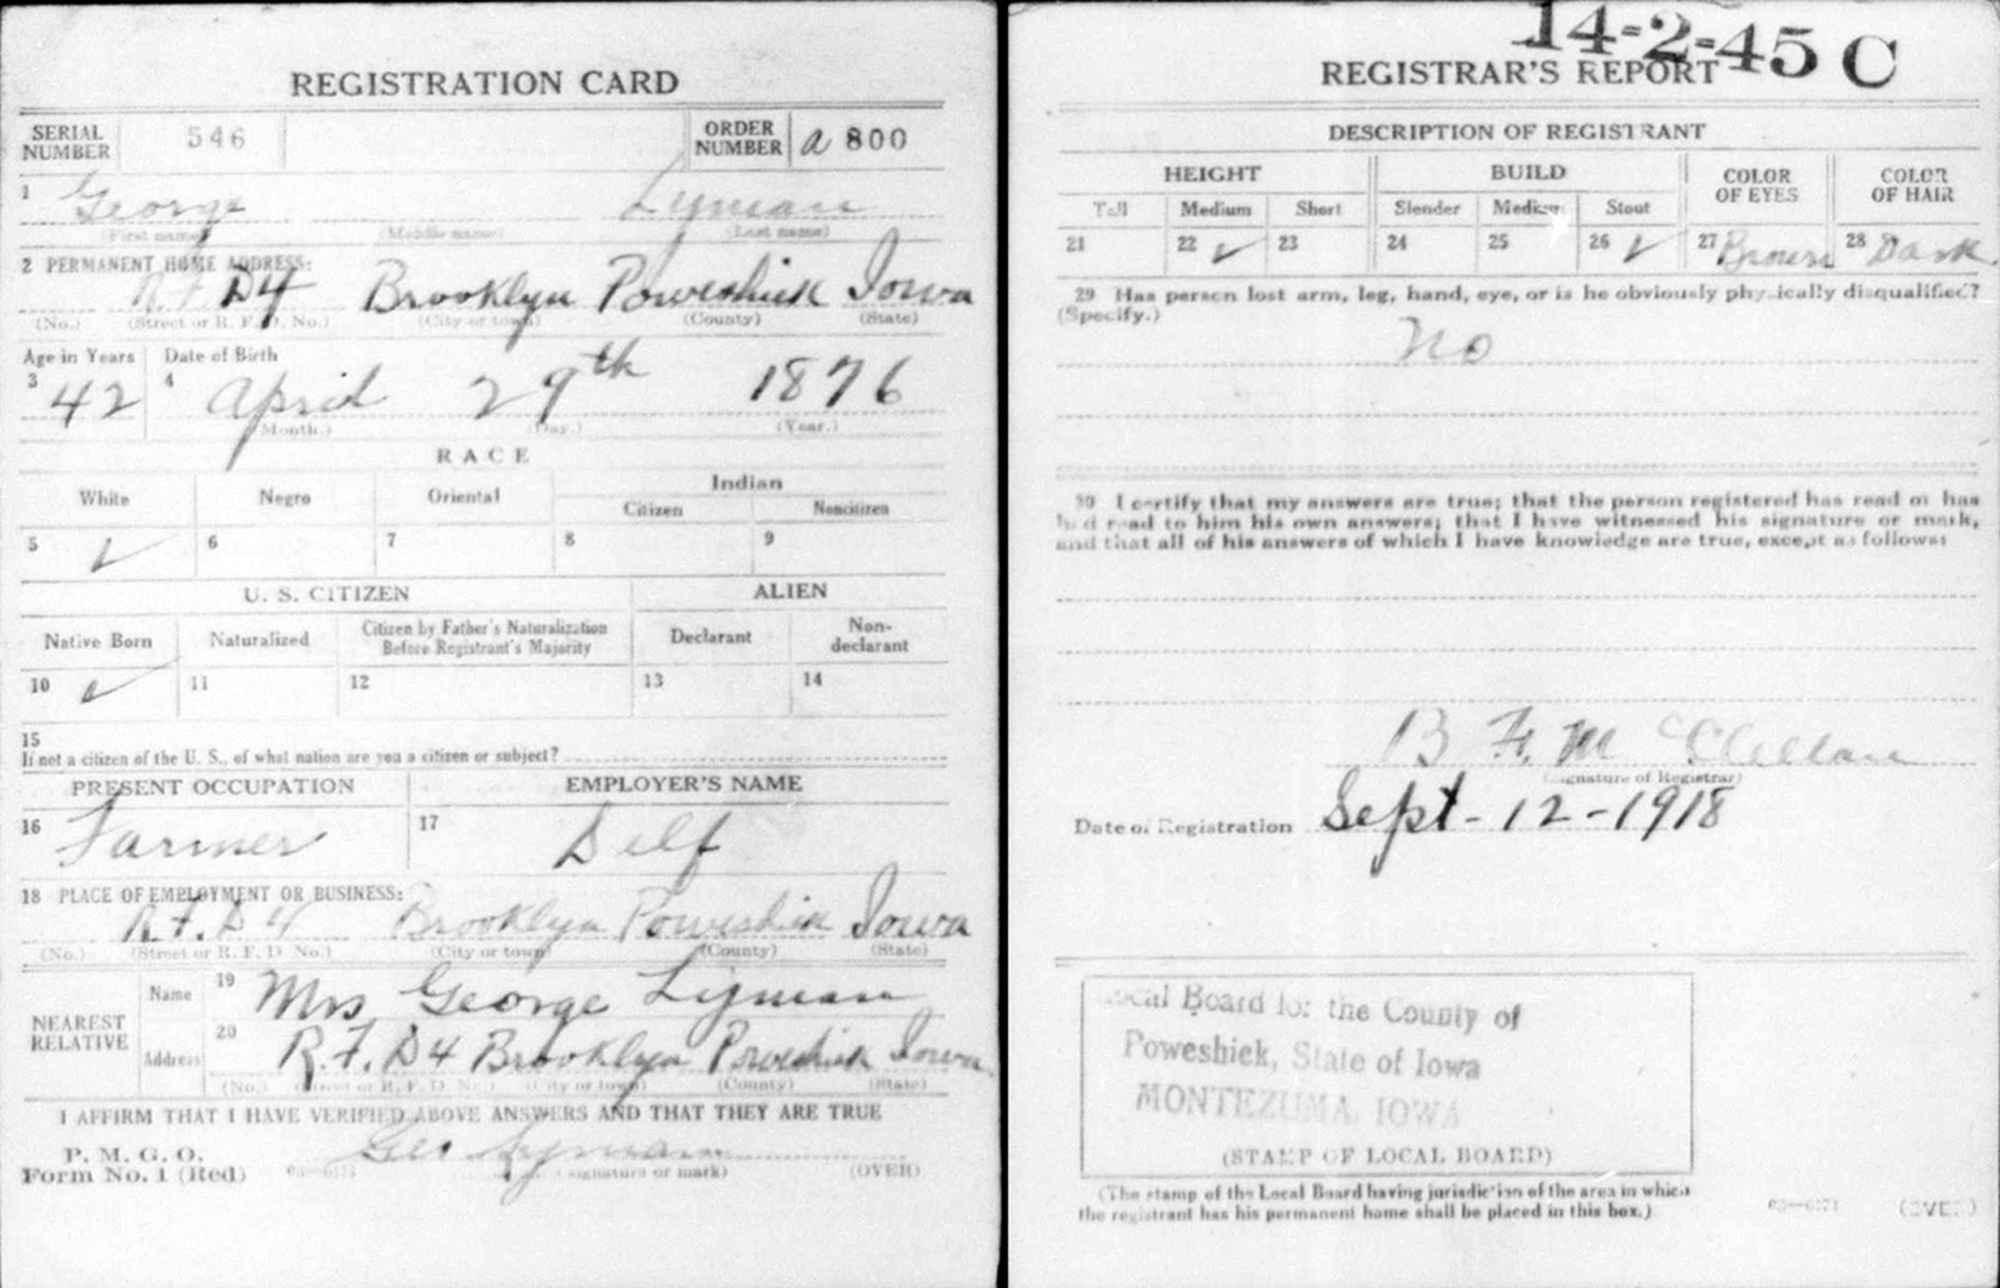 REGISTRATION CARD
SERIAL NUMBER 546 ORDER NUMBER a 800
1 George Lyman
(First name) (Middle name) (Last name)
2 PERMANENT HOME ADDRESS:
R.F.D4 Brooklyn Poweshiek Iowa
(No.) (Street or R. F. D. No.) (City or town) (County) (State)
Age in Years Date of Birth
3 42 4 April 29th 1876
(Month.) (Day.) (Year.)
RACE
White Negro Oriental Indian
Citizen Noncitizen
5 ✓ 6 7 8 9
U. S. CITIZEN ALIEN
Native Born Naturalized Citizen by Father's Naturalization Before Registrant's Majority Declarant Non-declarant
10 ✓ 11 12 13 14
15
If not a citizen of the U. S., of what nation are you a citizen or subject?
PRESENT OCCUPATION EMPLOYER'S NAME
16 Farmer 17 Self
18 PLACE OF EMPLOYMENT OR BUSINESS:
R.F.D 4 Brooklyn Poweshiek Iowa
(No.) (Street or R. F. D. No.) (City or town) (County) (State)
NEAREST RELATIVE
Name 19 Mrs George Lyman
Address 20 R.F.D4 Brooklyn Poweshiek Iowa
(No.) (Street or R. F. D. No.) (City or town) (County) (State)
I AFFIRM THAT I HAVE VERIFIED ABOVE ANSWERS AND THAT THEY ARE TRUE
P. M. G. O.
Form No. 1 (Red) 03—6171 Geo Lyman
(Signature or mark) (OVER)
14-2-45 C
REGISTRAR'S REPORT
DESCRIPTION OF REGISTRANT
HEIGHT BUILD COLOR OF EYES COLOR OF HAIR
Tall Medium Short Slender Medium Stout
21 22 ✓ 23 24 25 26 ✓ 27 Brown 28 Dark
29 Has person lost arm, leg, hand, eye, or is he obviously physically disqualified?
(Specify.)
No
30 I certify that my answers are true; that the person registered has read or has
had read to him his own answers; that I have witnessed his signature or mark,
and that all of his answers of which I have knowledge are true, except as follows:
B F. McClellan
(Signature of Registrar)
Date of Registration Sept - 12 - 1918
Local Board for the County of
Poweshiek, State of Iowa
MONTEZUMA, IOWA
(STAMP OF LOCAL BOARD)
(The stamp of the Local Board having jurisdiction of the area in which
the registrant has his permanent home shall be placed in this box.)
03—6171 (OVER)